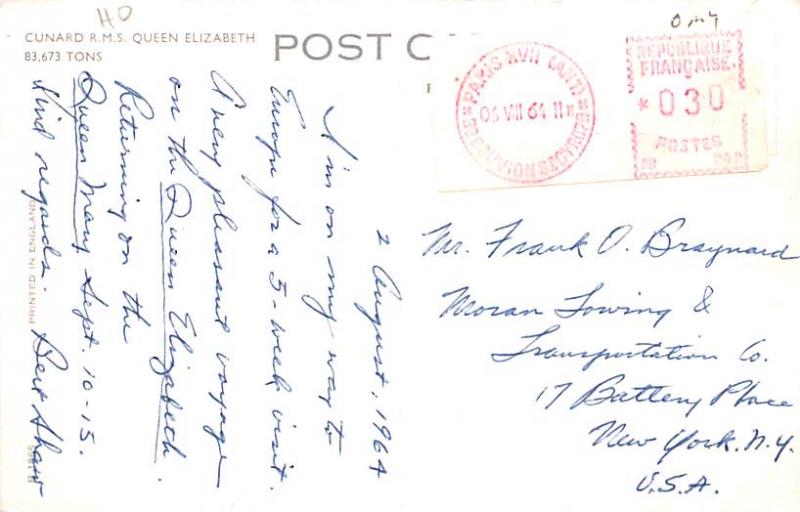 HO
CUNARD R.M.S. QUEEN ELIZABETH
83,673 TONS
POST C
PARIS XVII (ANT)
05 VIII 64 11
REPUBLIQUE
FRANÇAISE
* 030
POSTES
2 August, 1964
I'm on my way to
Europe for a 5-week visit.
A very pleasant voyage
on the Queen Elizabeth.
Returning on the
Queen Mary, Sept. 10-15.
Kind regards. Bert Shaw
Mr. Frank O. Braynard
Moran Towing &
Transportation Co.
17 Battery Place
New York, N.Y.
U.S.A.
PRINTED IN ENGLAND